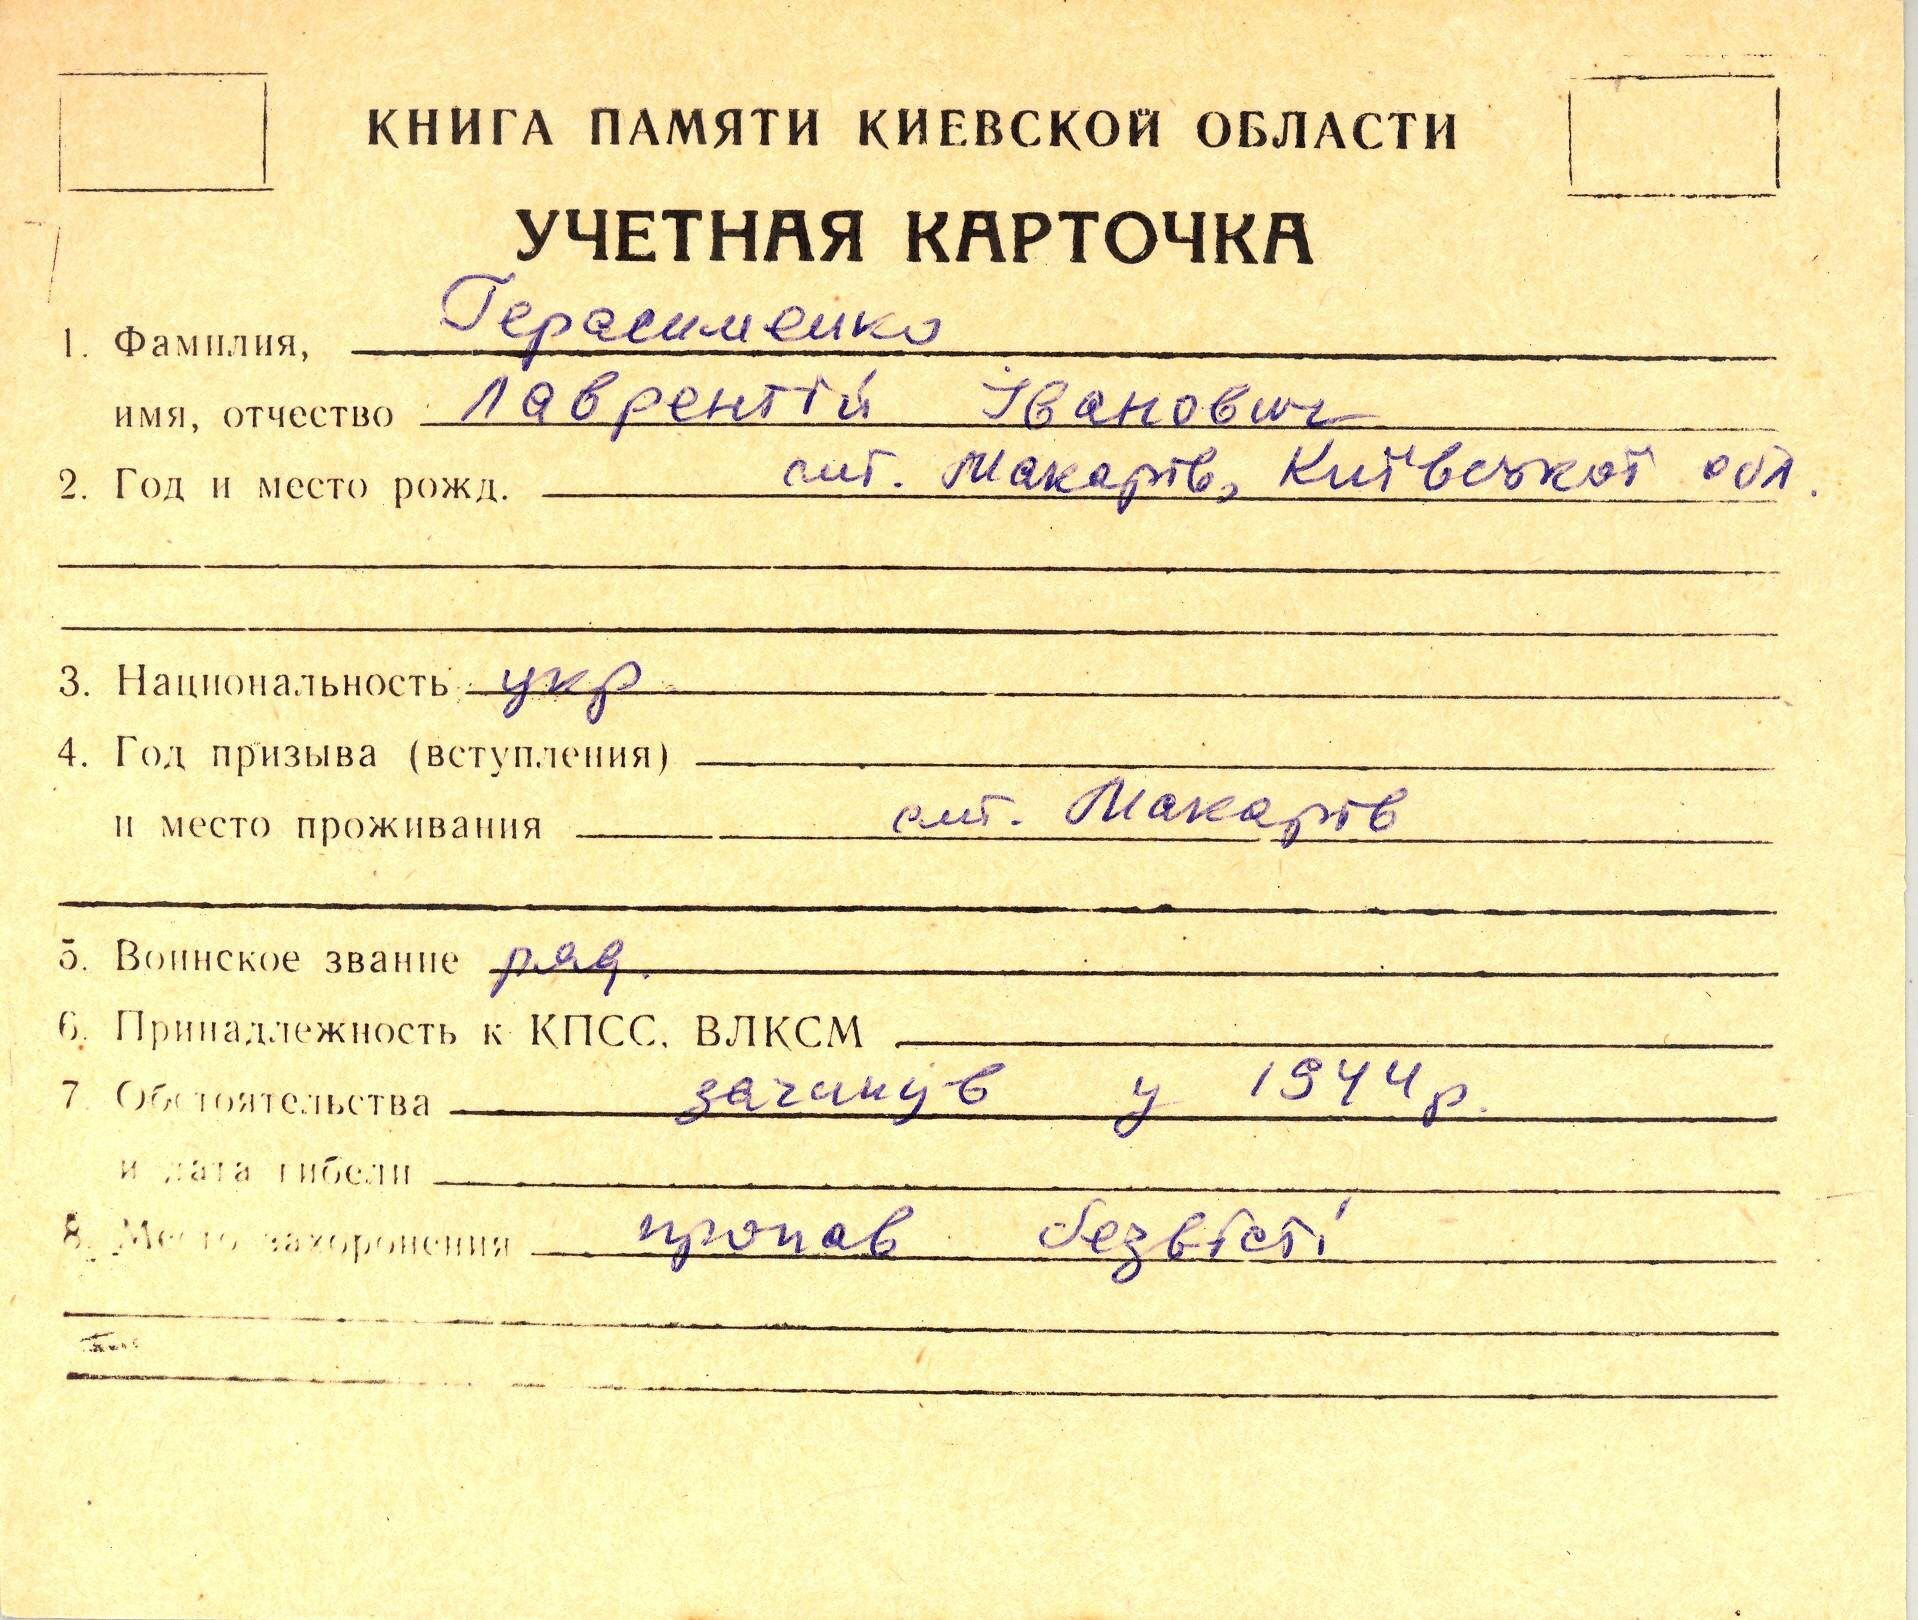 КНИГА ПАМЯТИ КИЕВСКОЙ ОБЛАСТИ
УЧЕТНАЯ КАРТОЧКА
1. Фамилия, Герасименко
имя, отчество Лаврентій Іванович
2. Год и место рожд. смт. Макарів, Київської обл.
3. Национальность укр
4. Год призыва (вступления)
и место проживания смт. Макарів
5. Воинское звание ряд.
6. Принадлежность к КПСС, ВЛКСМ
7 Обстоятельства загинув у 1944 р.
и дата гибели
8. Место захоронения пропав безвісті